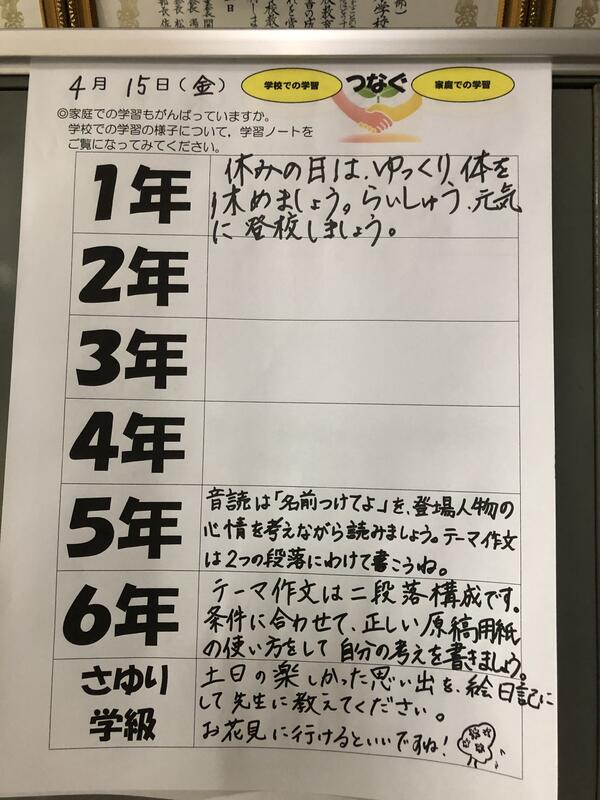 4月 15日(金)
学校での学習 つなぐ 家庭での学習
◎家庭での学習もがんばっていますか。
学校での学習の様子について，学習ノートを
ご覧になってみてください。
1年
休みの日は、ゆっくり、体を
休めましょう。らいしゅう、元気
に登校しましょう。
2年
3年
4年
5年
音読は「名前つけてよ」を、登場人物の
心情を考えながら読みましょう。テーマ作文
は2つの段落にわけて書こうね。
6年
テーマ作文は二段落構成です。
条件に合わせて、正しい原稿用紙
の使い方をして自分の考えを書きましょう。
さゆり
学級
土日の楽しかった思い出を、絵日記に
して先生に教えてください。
お花見に行けるといいですね!